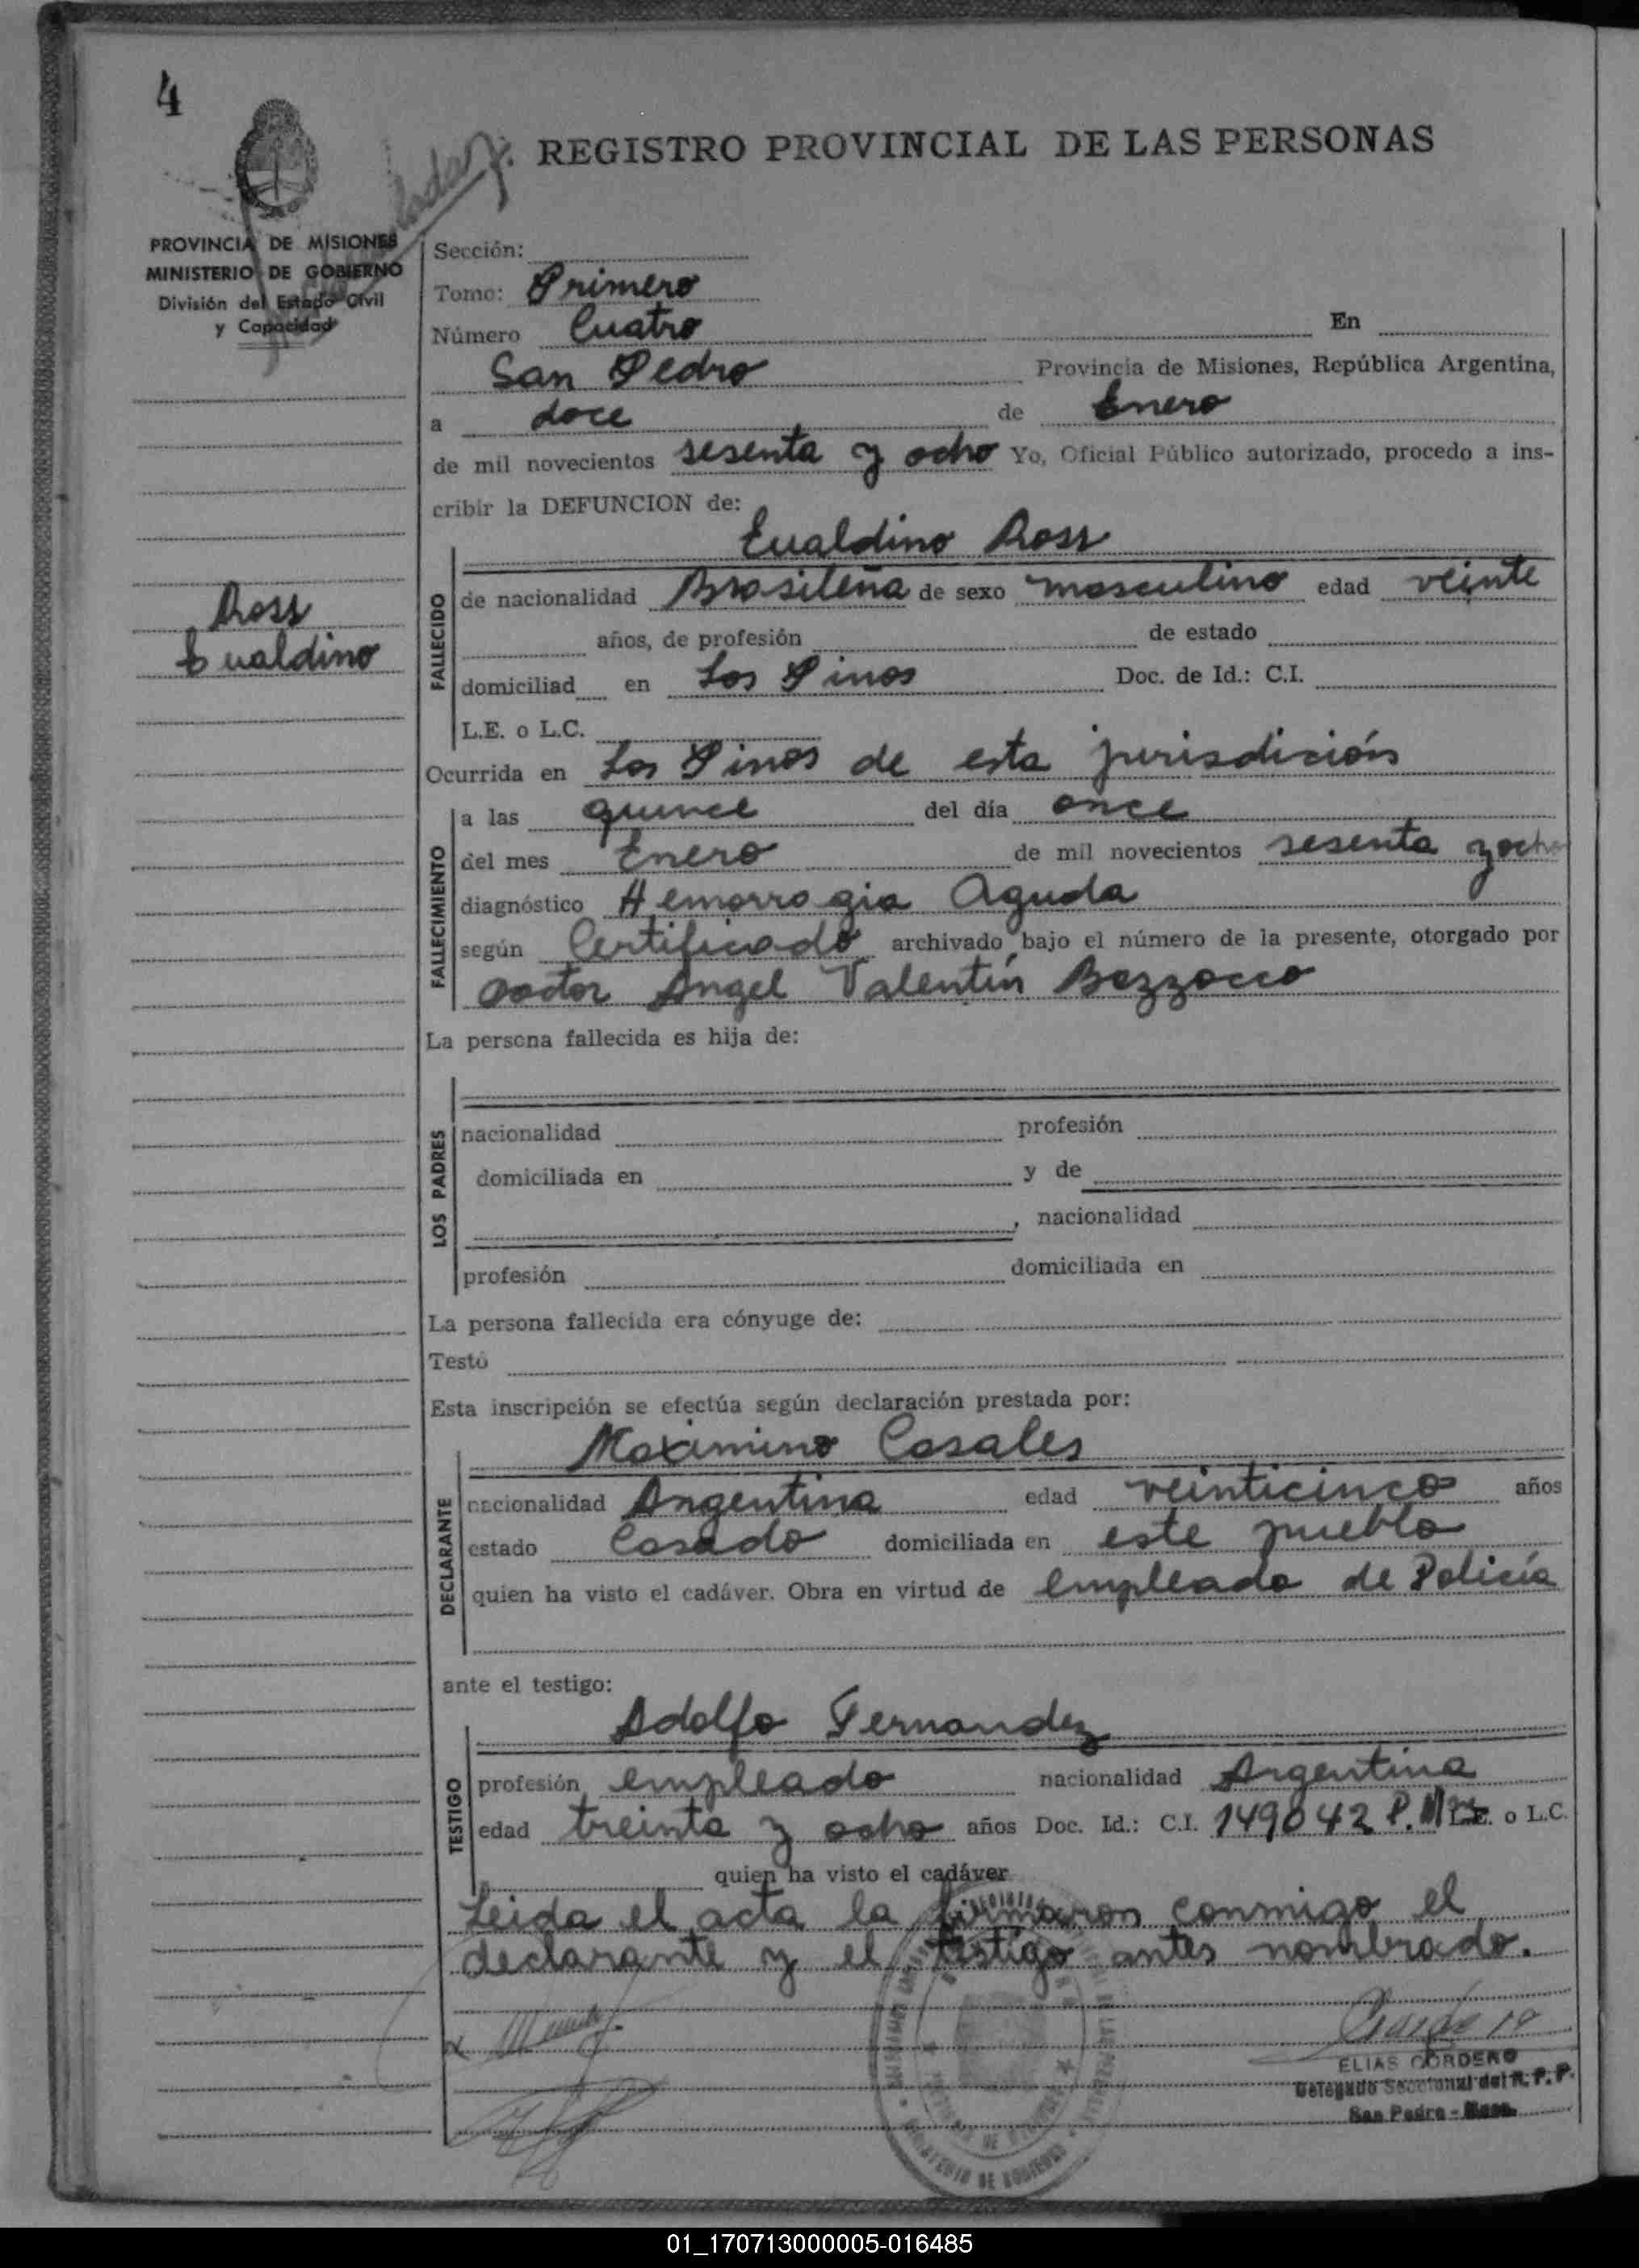 4
REGISTRO PROVINCIAL DE LAS PERSONAS
PROVINCIA DE MISIONES
MINISTERIO DE GOBIERNO
División del Estado Civil
y Capacidad
Sección:
Tomo: Primero
Número Cuatro En
San Pedro Provincia de Misiones, República Argentina,
a doce de Enero
de mil novecientos sesenta y ocho Yo, Oficial Público autorizado, procedo a ins-
cribir la DEFUNCION de:
Eualdino Ross
Ross
Eualdino
FALLECIDO
de nacionalidad Brasileña de sexo masculino edad veinte
años, de profesión de estado
domiciliad en Los Pinos Doc. de Id.: C.I.
L.E. o L.C.
Ocurrida en Los Pinos de esta jurisdición
FALLECIMIENTO
a las quince del día once
del mes Enero de mil novecientos sesenta y ocho
diagnóstico Hemorragia Aguda
según Certificado archivado bajo el número de la presente, otorgado por
Doctor Angel Valentín Bozzocco
La persona fallecida es hija de:
LOS PADRES
nacionalidad profesión
domiciliada en y de
, nacionalidad
profesión domiciliada en
La persona fallecida era cónyuge de:
Testó
Esta inscripción se efectúa según declaración prestada por:
Maximino Casales
DECLARANTE
nacionalidad Argentina edad veinticinco años
estado Casado domiciliada en este pueblo
quien ha visto el cadáver. Obra en virtud de empleado de Policía
ante el testigo:
Adolfo Fernandez
TESTIGO
profesión empleado nacionalidad Argentina
edad treinta y ocho años Doc. Id.: C.I. 149042 P. L.E. o L.C.
quien ha visto el cadáver
Leida el acta la firmaron conmigo el
declarante y el testigo antes nombrado.
ELIAS CORDERO
Delegado Seccional del R. P. P.
San Pedro - Mnes.
01_170713000005-016485